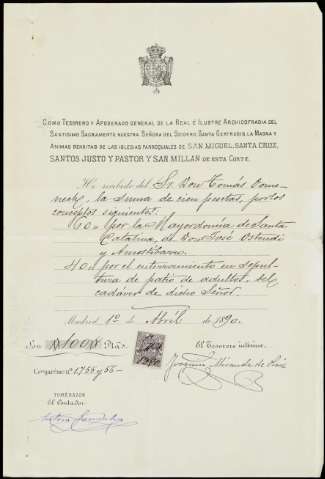 COMO TESORERO Y APODERADO GENERAL DE LA REAL É ILUSTRE ARCHICOFRADIA DEL
SANTÍSIMO SACRAMENTO NUESTRA SEÑORA DEL SOCORRO SANTA GERTRUDIS LA MAGNA Y
ANIMAS BENDITAS DE LAS IGLESIAS PARROQUIALES DE SAN MIGUEL, SANTA CRUZ,
SANTOS JUSTO Y PASTOR Y SAN MILLAN DE ESTA CORTE.
He recibido del Sr. Don Tomás
la suma de cien pesetas, por los
conceptos siguientes:
60 " por la Mayordomía de Santa
Catalina, de Don José
y
40 " por el enterramiento en sepul-
tura de patio de adultos, del
cadáver de dicho Señor.
Madrid, 1º de Abril de 1890.
Son 100 Ptas.
El Tesorero interino.
Joaquín Miranda de
TOMÉ RAZON
El Contador